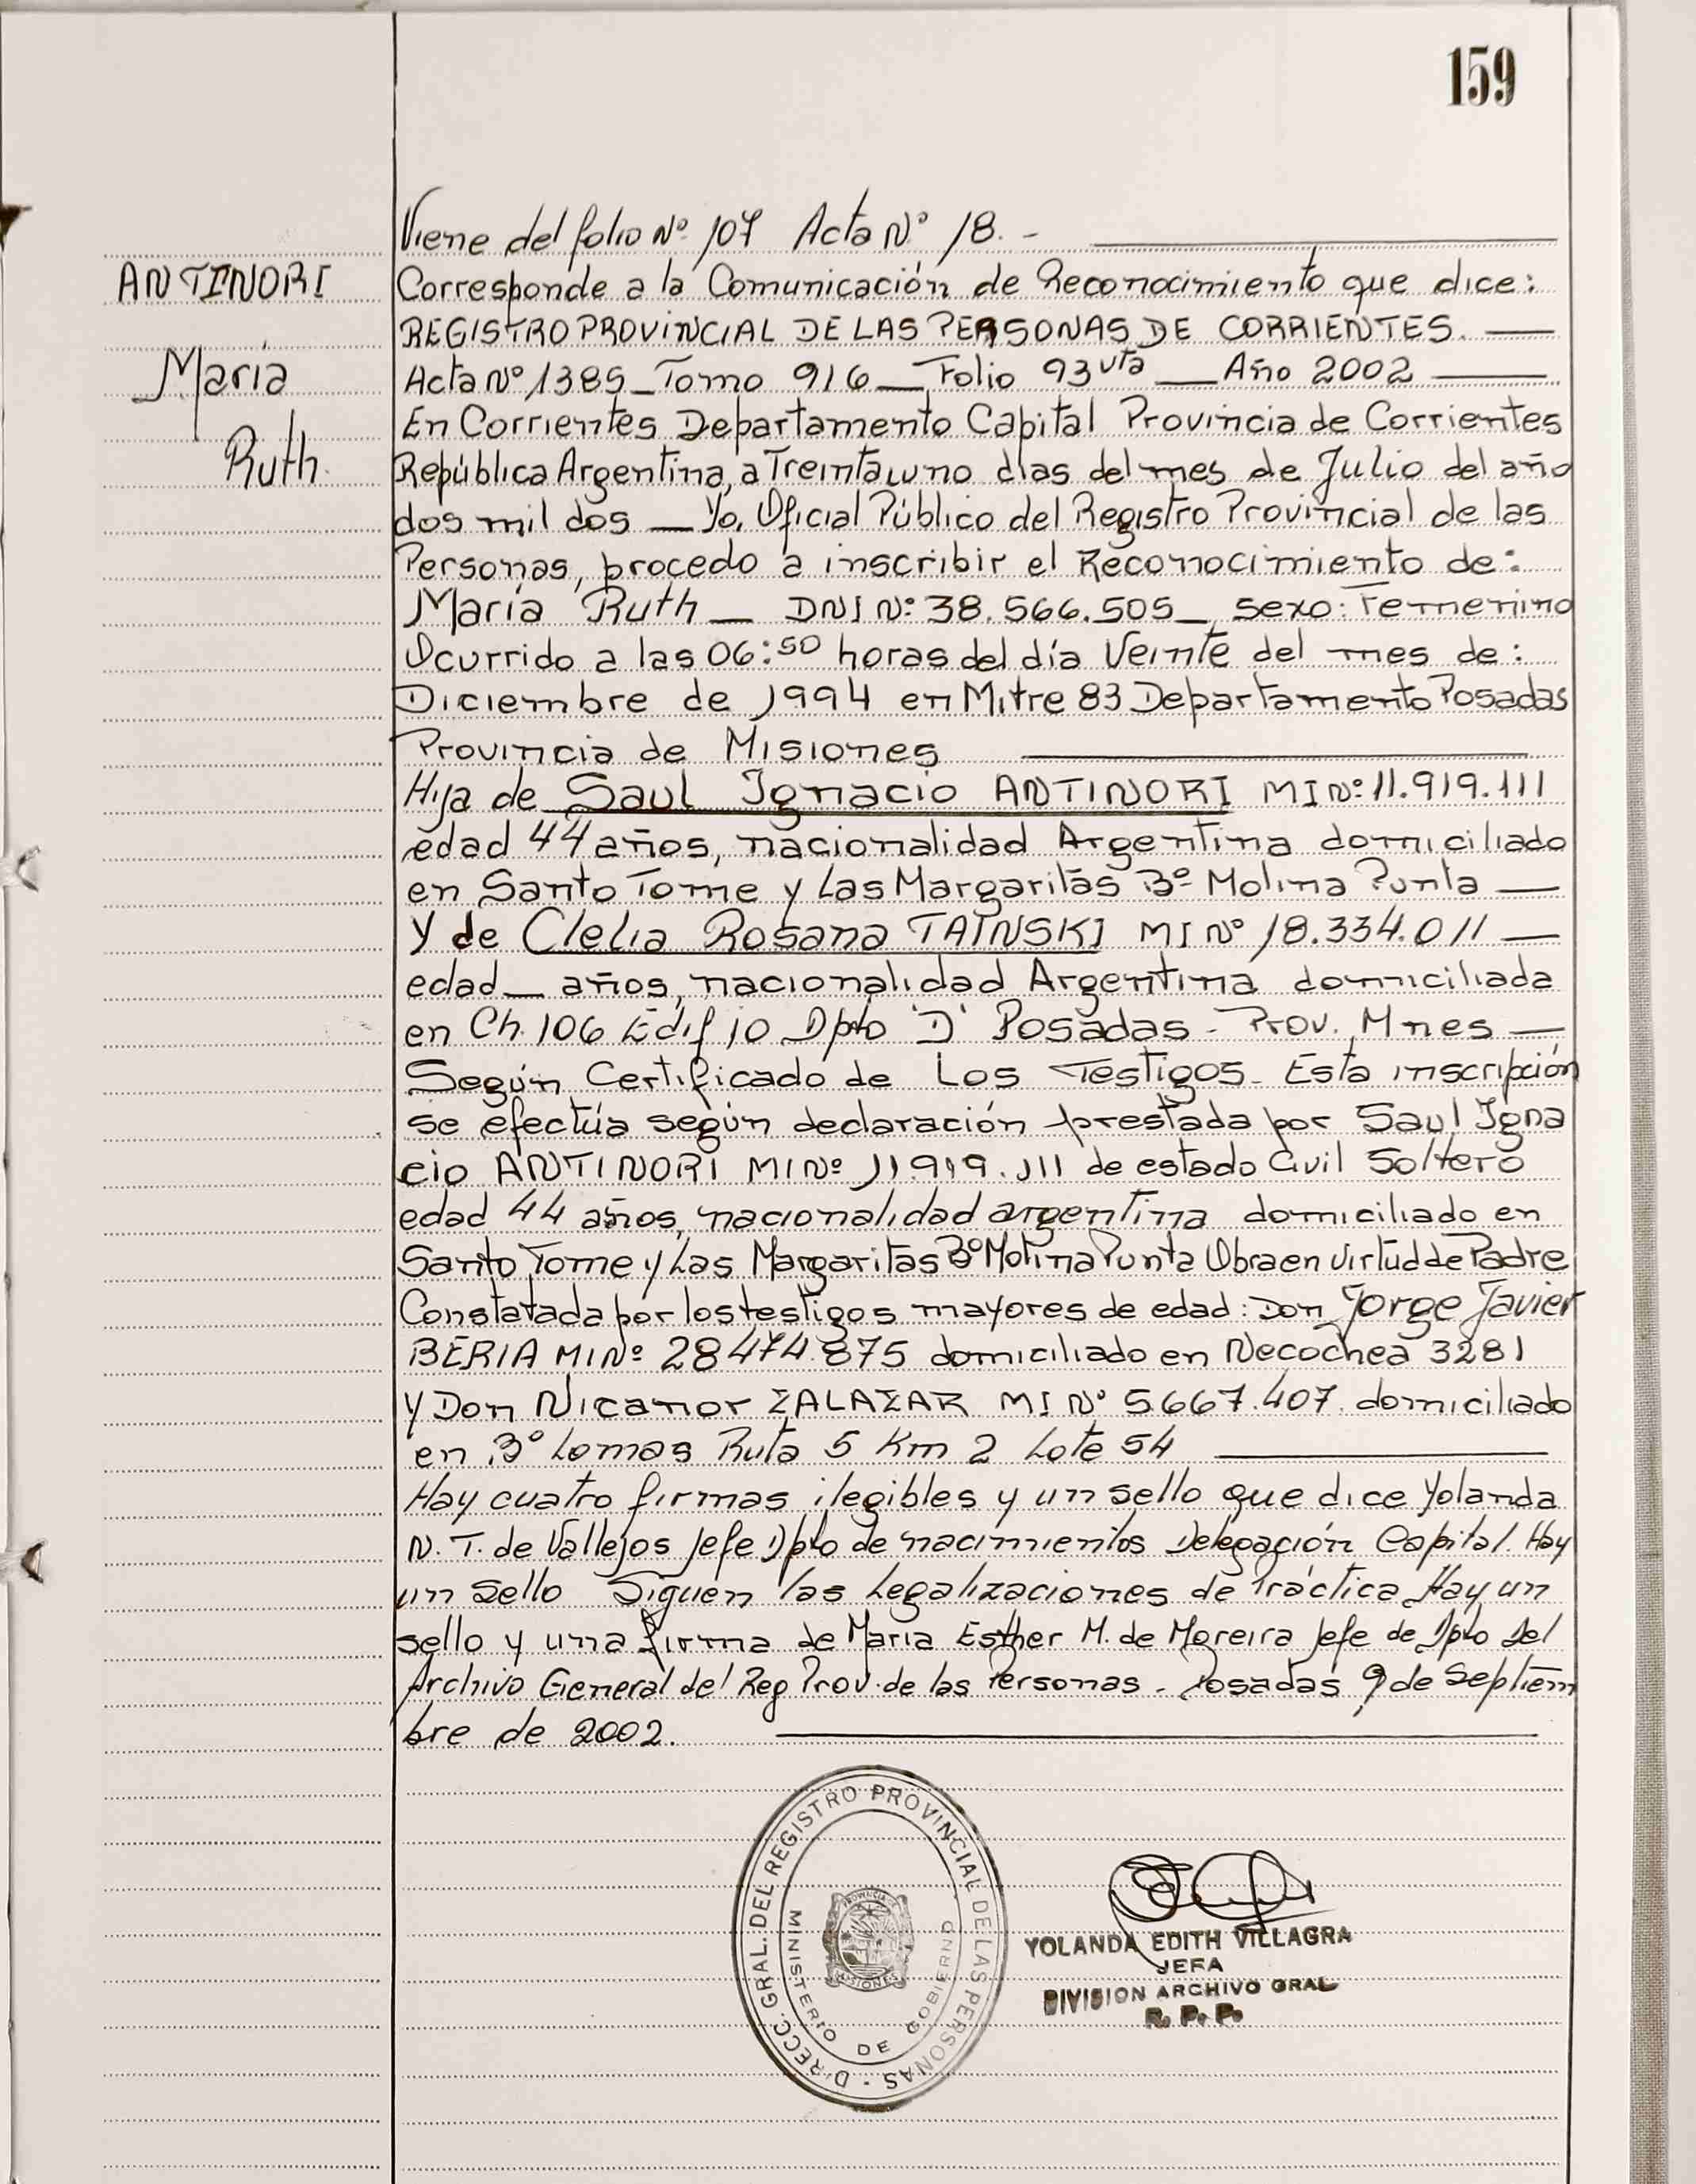 159
Viene del folio Nº 107 Acta Nº 18. -
ANTINORI
María
Ruth.
Corresponde a la Comunicación de Reconocimiento que dice:
REGISTRO PROVINCIAL DE LAS PERSONAS DE CORRIENTES.
Acta Nº 1385 _ Tomo 916 _ Folio 93 vta _ Año 2002
En Corrientes, Departamento Capital Provincia de Corrientes
República Argentina, a Treintaiuno días del mes de Julio del año
dos mil dos _ Yo, Oficial Público del Registro Provincial de las
Personas, procedo a inscribir el Reconocimiento de:
María Ruth _ DNI Nº: 38.566.505 _, sexo: Femenino
Ocurrido a las 06:50 horas del día Veinte del mes de:
Diciembre de 1994 en Mitre 83 Departamento Posadas
Provincia de Misiones
Hija de Saul Ignacio ANTINORI MI Nº: 11.919.111
edad 44 años, nacionalidad Argentina domiciliado
en Santo Tome y Las Margaritas Bº Molina Punta _
y de Clelia Rosana TATNSKI MI Nº 18.334.011 _
edad _ años, nacionalidad Argentina domiciliada
en Ch. 106 Edif 10 Dpto 'D' Posadas - Prov. Mnes _
Según Certificado de Los Testigos - Esta inscripción
se efectúa según declaración prestada por Saul Igna
cio ANTINORI MI Nº 11.919.111 de estado Civil Soltero
edad 44 años, nacionalidad argentina domiciliado en
Santo Tome y Las Margaritas Bº Molina Punta Obra en virtud de Padre
Constatada por los testigos mayores de edad: Don Jorge Javier
BERIA MI Nº 28.474.875 domiciliado en Necochea 3281
y Don Nicanor ZALAZAR MI Nº 5.667.407 domiciliado
en Bº Lomas Ruta 5 Km 2 Lote 54
Hay cuatro firmas ilegibles y un sello que dice Yolanda
N. T. de Vallejos Jefe Dpto de nacimientos Delegación Capital. Hay
un sello Siguen las Legalizaciones de Práctica Hay un
sello y una firma de María Esther M. de Moreira Jefe de Dpto Del
Archivo General del Reg Prov. de las Personas - Posadas 9 de Septiem
bre de 2002.
DIRECC. GRAL. DEL REGISTRO PROVINCIAL DE LAS PERSONAS -
MINISTERIO DE GOBIERNO
PROVINCIA
MISIONES
YOLANDA EDITH VILLAGRA
JEFA
DIVISION ARCHIVO GRAL
R. P. P.